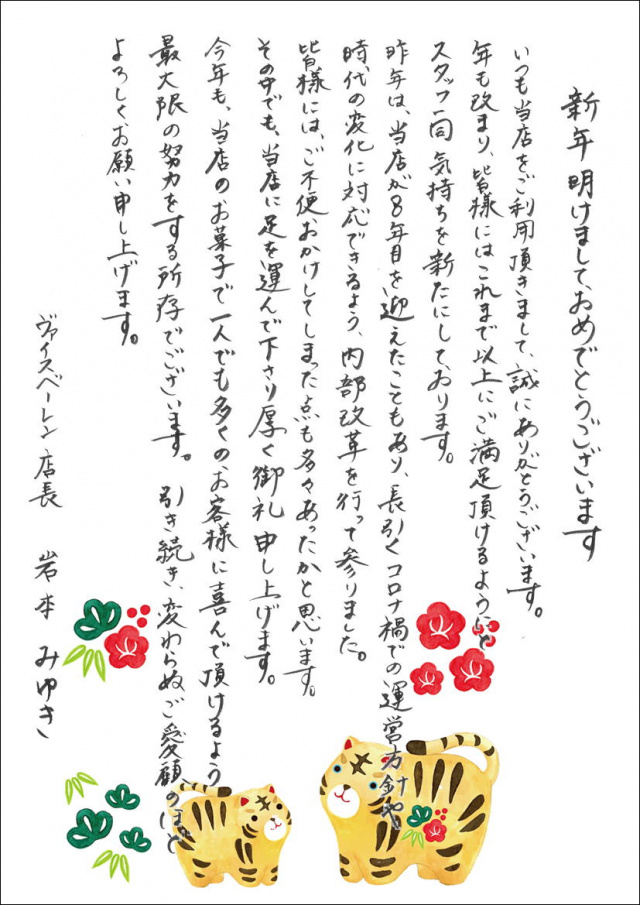 新年明けましておめでとうございます
いつも当店をご利用頂きまして、誠にありがとうございます。
年も改まり、皆様にはこれまで以上にご満足頂けるようにと
スタッフ一同気持ちを新たにしております。
昨年は、当店が8年目を迎えたこともあり、長引くコロナ禍での運営方針や、
時代の変化に対応できるよう、内部改革を行って参りました。
皆様には、ご不便おかけしてしまった点も多々あったかと思います。
その中でも、当店に足を運んで下さり厚く御礼申し上げます。
今年も、当店のお菓子で一人でも多くのお客様に喜んで頂けるよう
最大限の努力をする所存でございます。引き続き、変わらぬご愛顧のほど
よろしくお願い申し上げます。
ヴァイスベーレン店長 岩本みゆき